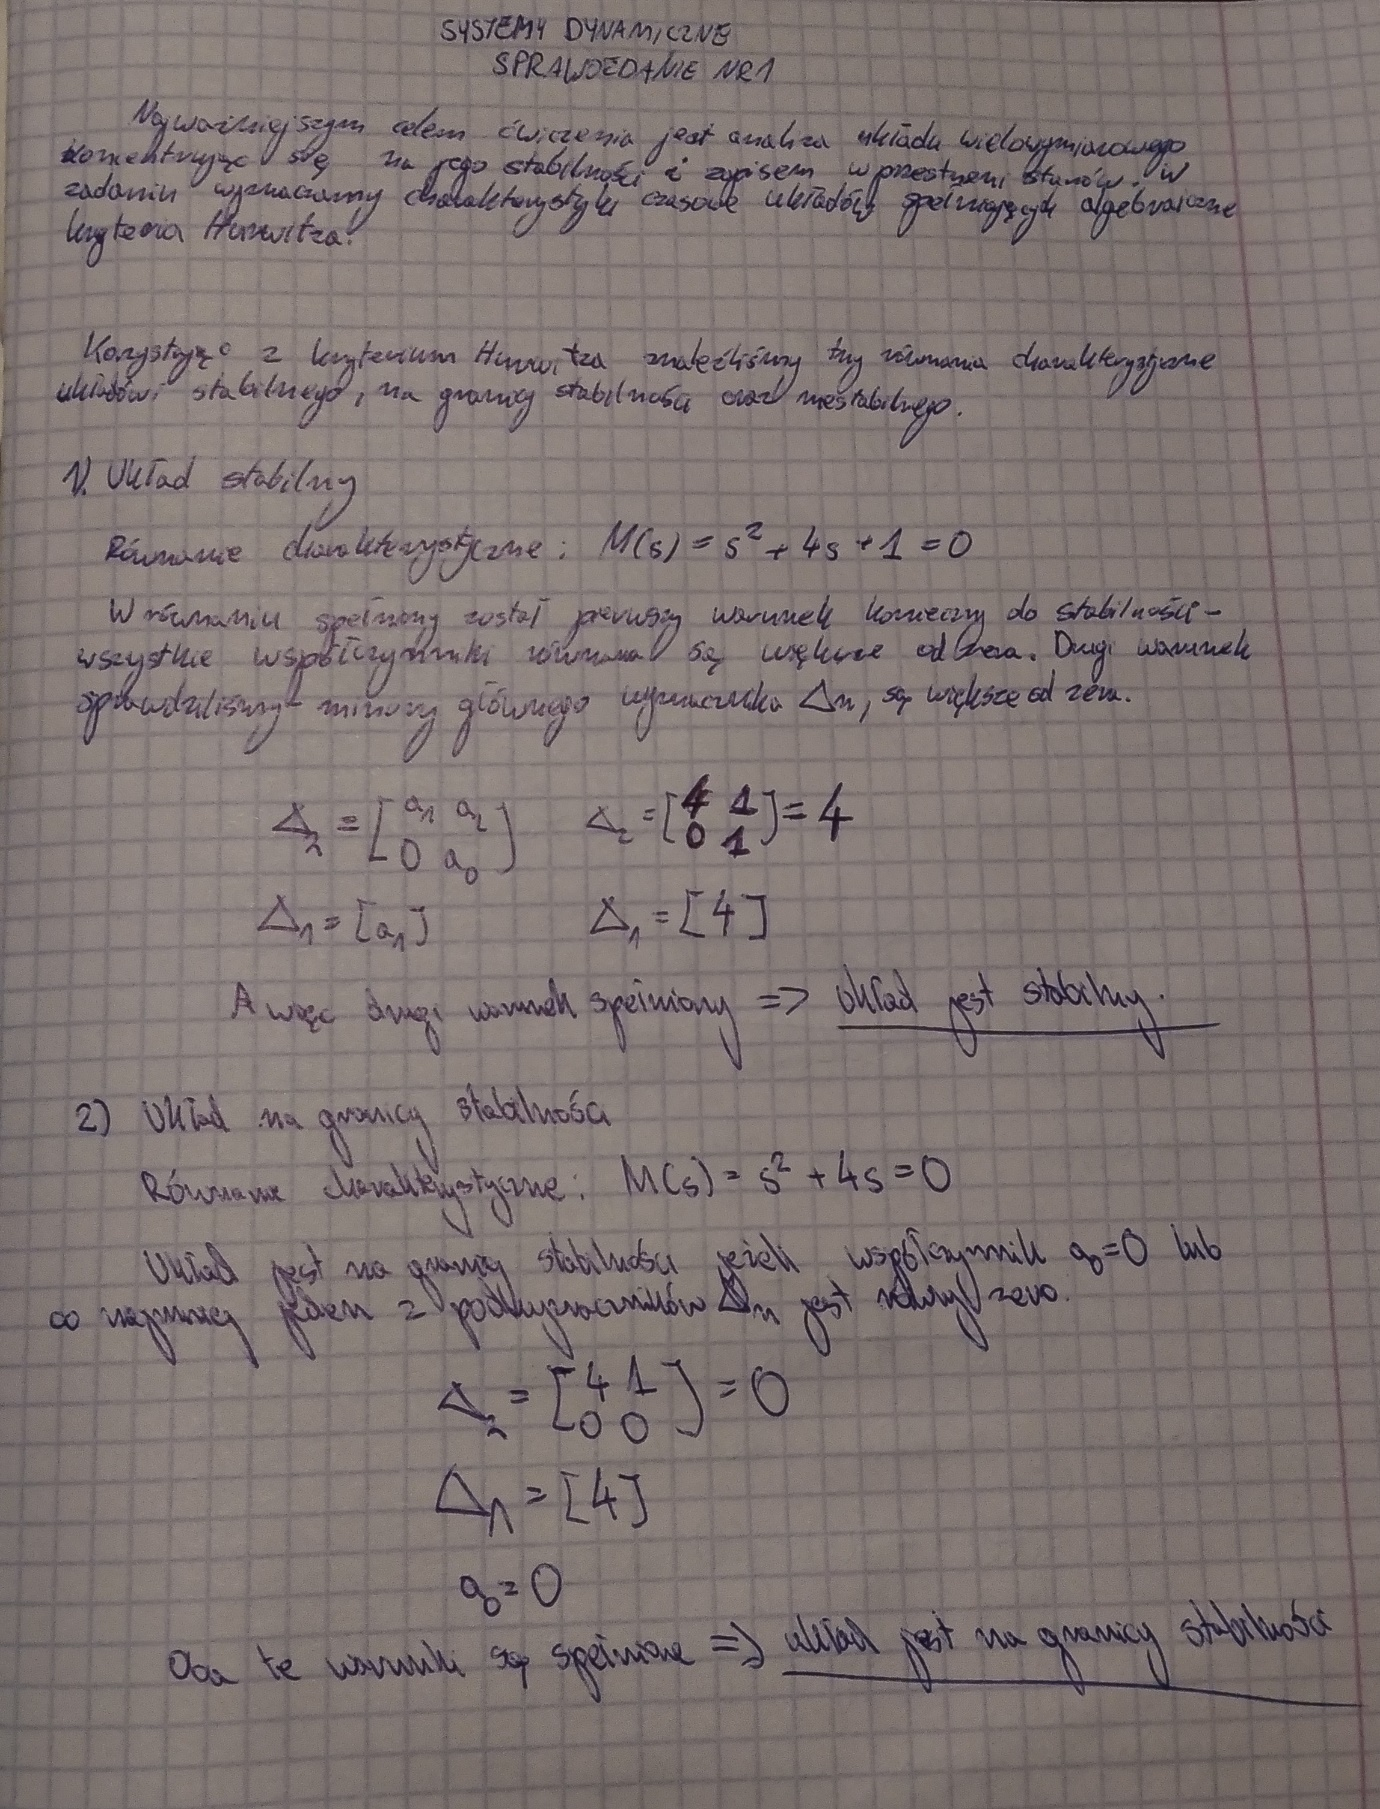 SYSTEMY DYNAMICZNE
SPRAWOZDANIE NR 1
Najważniejszym celem ćwiczenia jest analiza układu wielowymiarowego
koncentrując się na jego stabilności i zapisem w przestrzeni stanów. W
zadaniu wyznaczamy charakterystyki czasowe układów spełniających algebraiczne
kryteria Hurwitza.
Korzystając z kryterium Hurwitza znaleźliśmy trzy równania charakterystyczne
układów: stabilnego, na granicy stabilności oraz niestabilnego.
1). Układ stabilny
Równanie charakterystyczne: M(s) = s² + 4s + 1 = 0
W równaniu spełniony został pierwszy warunek konieczny do stabilności -
wszystkie współczynniki równania są większe od zera. Drugi warunek
sprawdziliśmy - minory głównego wyznacznika Δn, są większe od zera.
Δ₂ = [a₁ a₂ Δ₂ = [4 1
0 a₀] 0 1] = 4
Δ₁ = [a₁] Δ₁ = [4]
A więc drugi warunek spełniony => układ jest stabilny.
2) Układ na granicy stabilności
Równanie charakterystyczne: M(s) = s² + 4s = 0
Układ jest na granicy stabilności jeżeli współczynnik a₀ = 0 lub
co najmniej jeden z podwyznaczników Δn jest równy zero.
Δ₂ = [4 1
0 0] = 0
Δ₁ = [4]
a₀ = 0
Oba te warunki są spełnione => układ jest na granicy stabilności